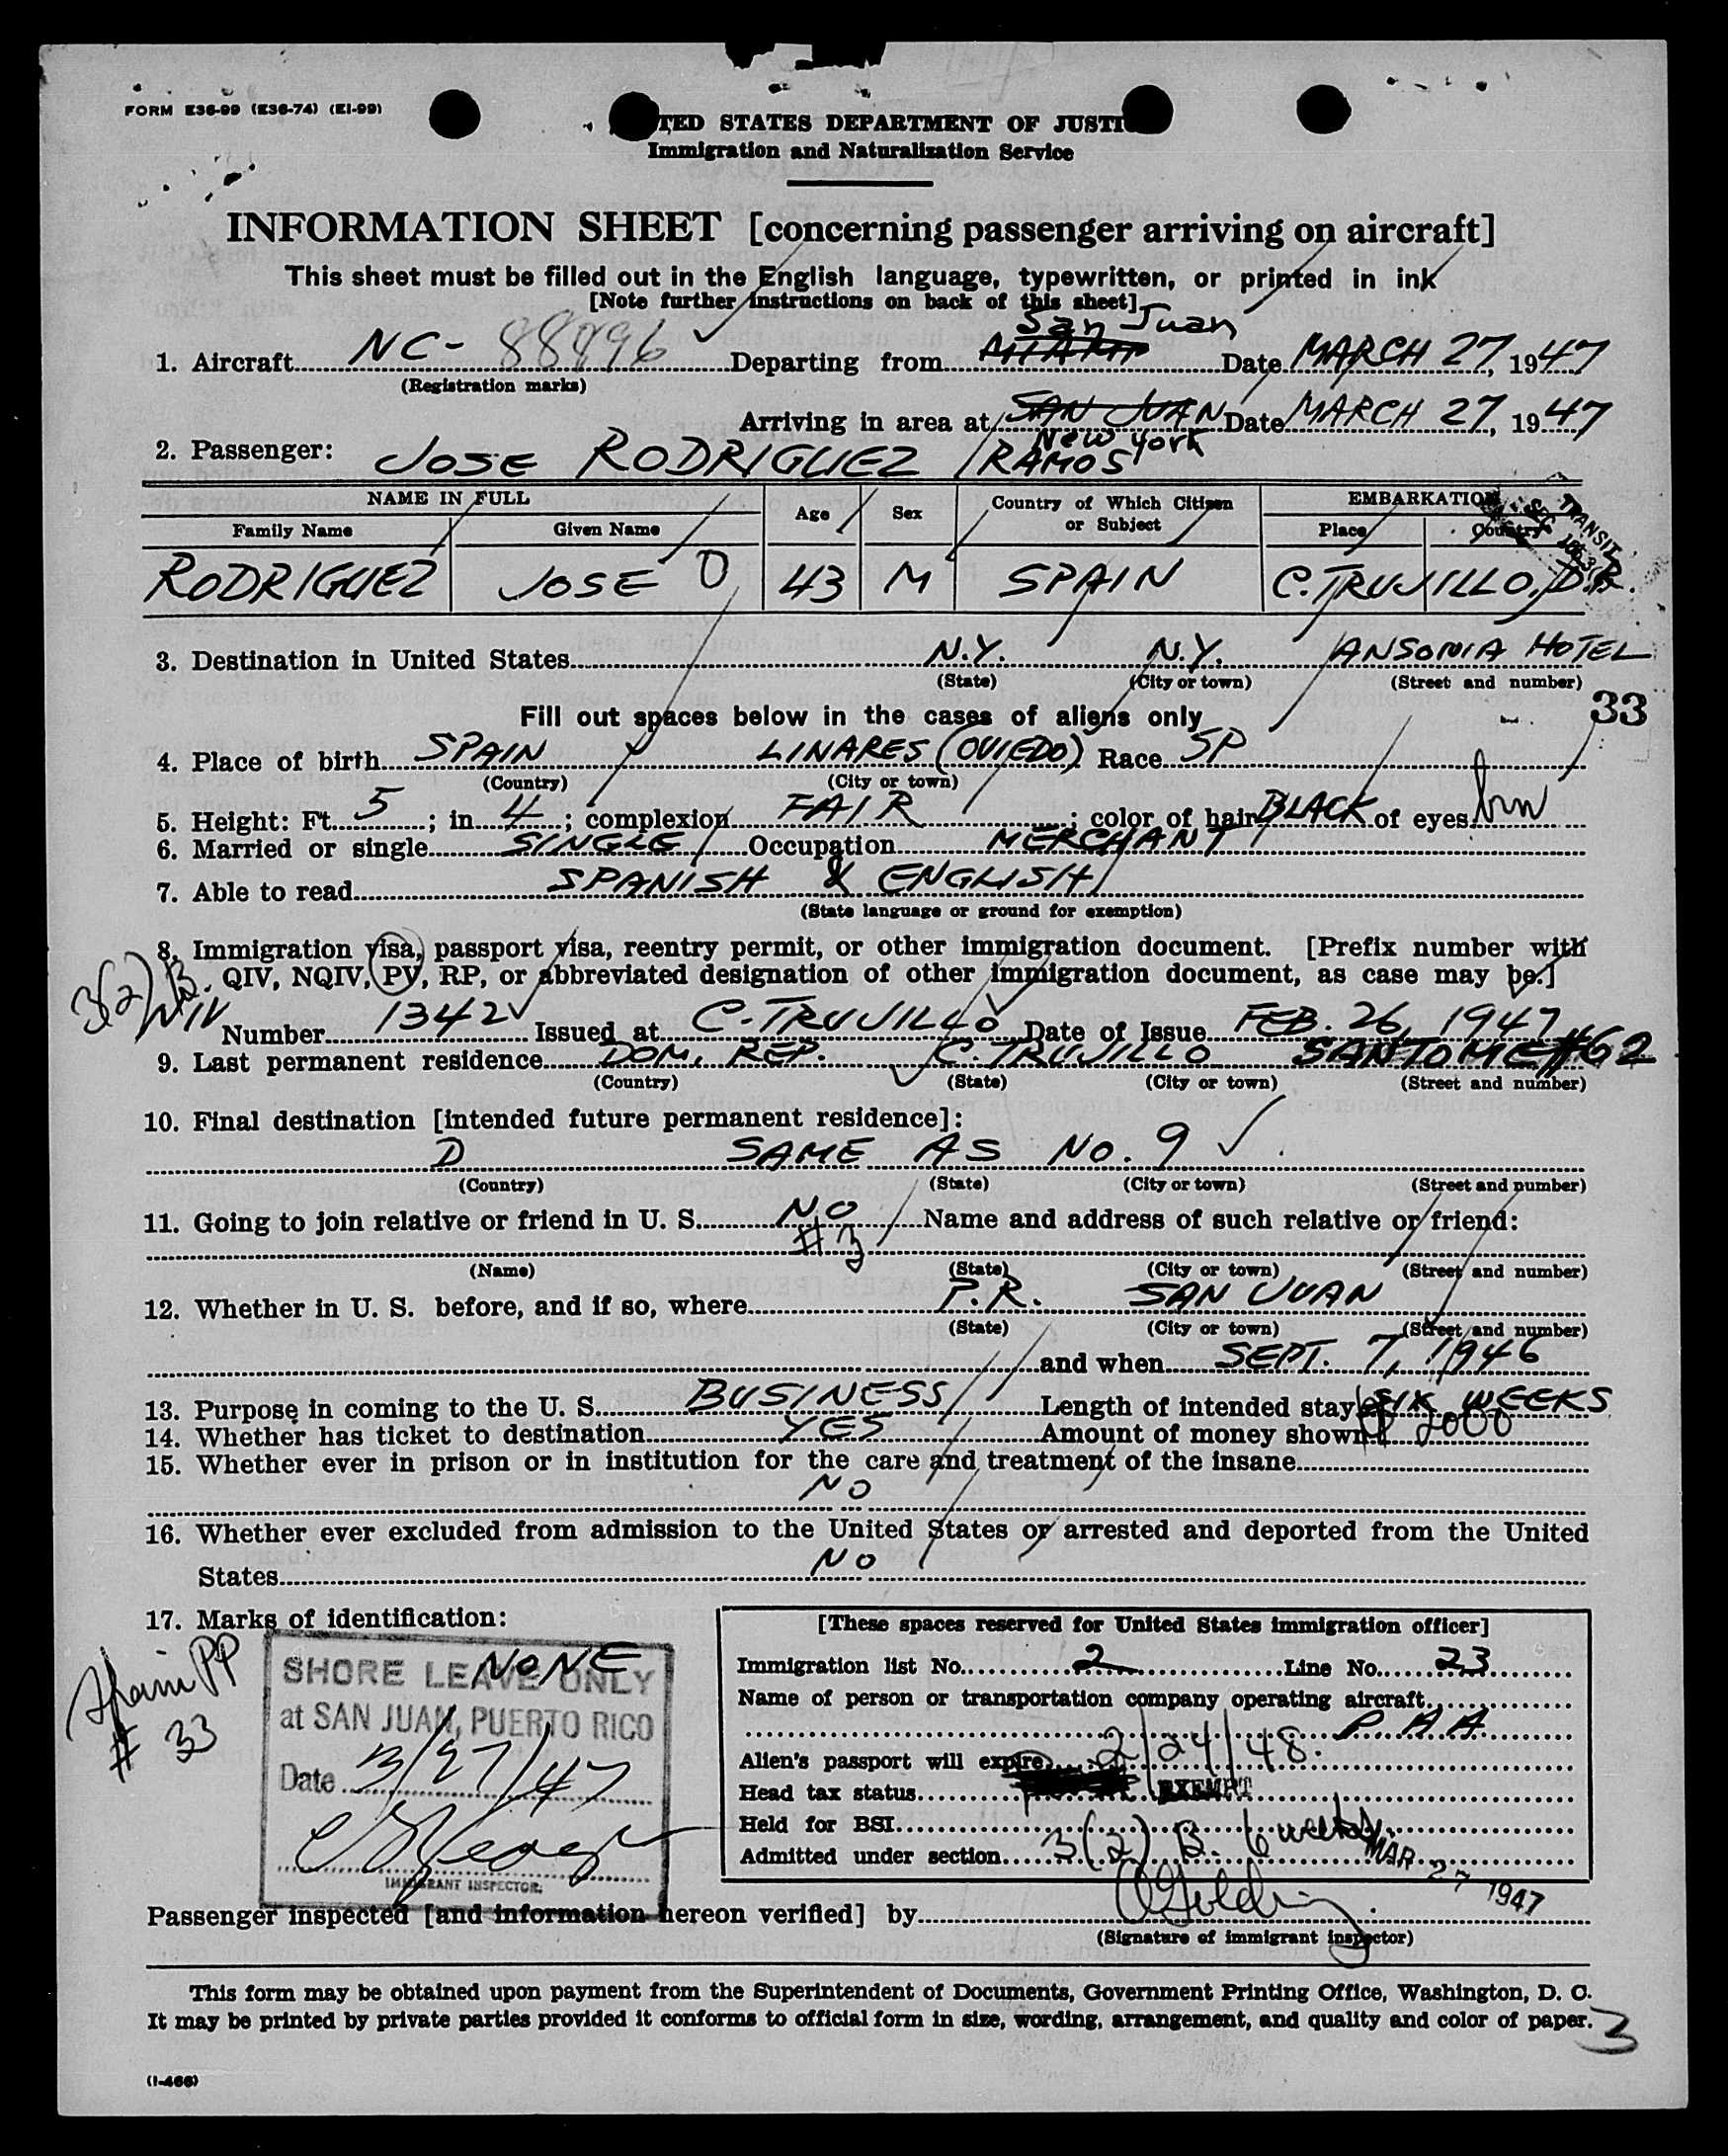 FORM E36-99 (E36-74) (E1-99)
TED STATES DEPARTMENT OF JUSTI
Immigration and Naturalization Service
INFORMATION SHEET [concerning passenger arriving on aircraft]
This sheet must be filled out in the English language, typewritten, or printed in ink
[Note further instructions on back of this sheet]
San Juan
1. Aircraft NC- 88896 Departing from MIAMI Date MARCH 27, 1947
(Registration marks)
Arriving in area at SAN JUAN Date MARCH 27, 1947
New York
2. Passenger: JOSE RODRIGUEZ RAMOS
NAME IN FULL Age Sex Country of Which Citizen or Subject EMBARKATION
Family Name Given Name Place Country
TRANSIT
RODRIGUEZ JOSE O 43 M SPAIN C. TRUJILLO, D.R.
3. Destination in United States N.Y. N.Y. ANSONIA HOTEL
(State) (City or town) (Street and number)
33
Fill out spaces below in the cases of aliens only
4. Place of birth SPAIN LINARES (OVIEDO) Race SP
(Country) (City or town)
5. Height: Ft. 5; in. 4; complexion FAIR; color of hair BLACK of eyes brn
6. Married or single SINGLE Occupation MERCHANT
7. Able to read SPANISH & ENGLISH
(State language or ground for exemption)
8. Immigration visa, passport visa, reentry permit, or other immigration document. [Prefix number with
QIV, NQIV, PV, RP, or abbreviated designation of other immigration document, as case may be.]
3(2) B
NIV
Number 1342 Issued at C. TRUJILLO Date of Issue FEB. 26, 1947
9. Last permanent residence DOM. REP. C. TRUJILLO SANTOME #62
(Country) (State) (City or town) (Street and number)
10. Final destination [intended future permanent residence]:
D SAME AS NO. 9
(Country) (State) (City or town) (Street and number)
11. Going to join relative or friend in U. S. NO Name and address of such relative or friend:
# 3
(Name) (State) (City or town) (Street and number)
12. Whether in U. S. before, and if so, where P.R. SAN JUAN
(State) (City or town) (Street and number)
and when SEPT. 7, 1946
13. Purpose in coming to the U. S. BUSINESS Length of intended stay SIX WEEKS
14. Whether has ticket to destination YES Amount of money shown $ 2000
15. Whether ever in prison or in institution for the care and treatment of the insane
NO
16. Whether ever excluded from admission to the United States or arrested and deported from the United
States NO
17. Marks of identification:
NONE
Spain PP
# 33
SHORE LEAVE ONLY
at SAN JUAN, PUERTO RICO
Date 3/27/47
IMMIGRANT INSPECTOR.
[These spaces reserved for United States immigration officer]
Immigration list No. 2 Line No. 23
Name of person or transportation company operating aircraft
P.A.A.
Alien's passport will expire 2/24/48.
Head tax status EXEMPT
Held for BSI
Admitted under section 3(2) B. 6 weeks
MAR 27 1947
Passenger inspected [and information hereon verified] by
(Signature of immigrant inspector)
This form may be obtained upon payment from the Superintendent of Documents, Government Printing Office, Washington, D. C.
It may be printed by private parties provided it conforms to official form in size, wording, arrangement, and quality and color of paper.
3
(I-466)